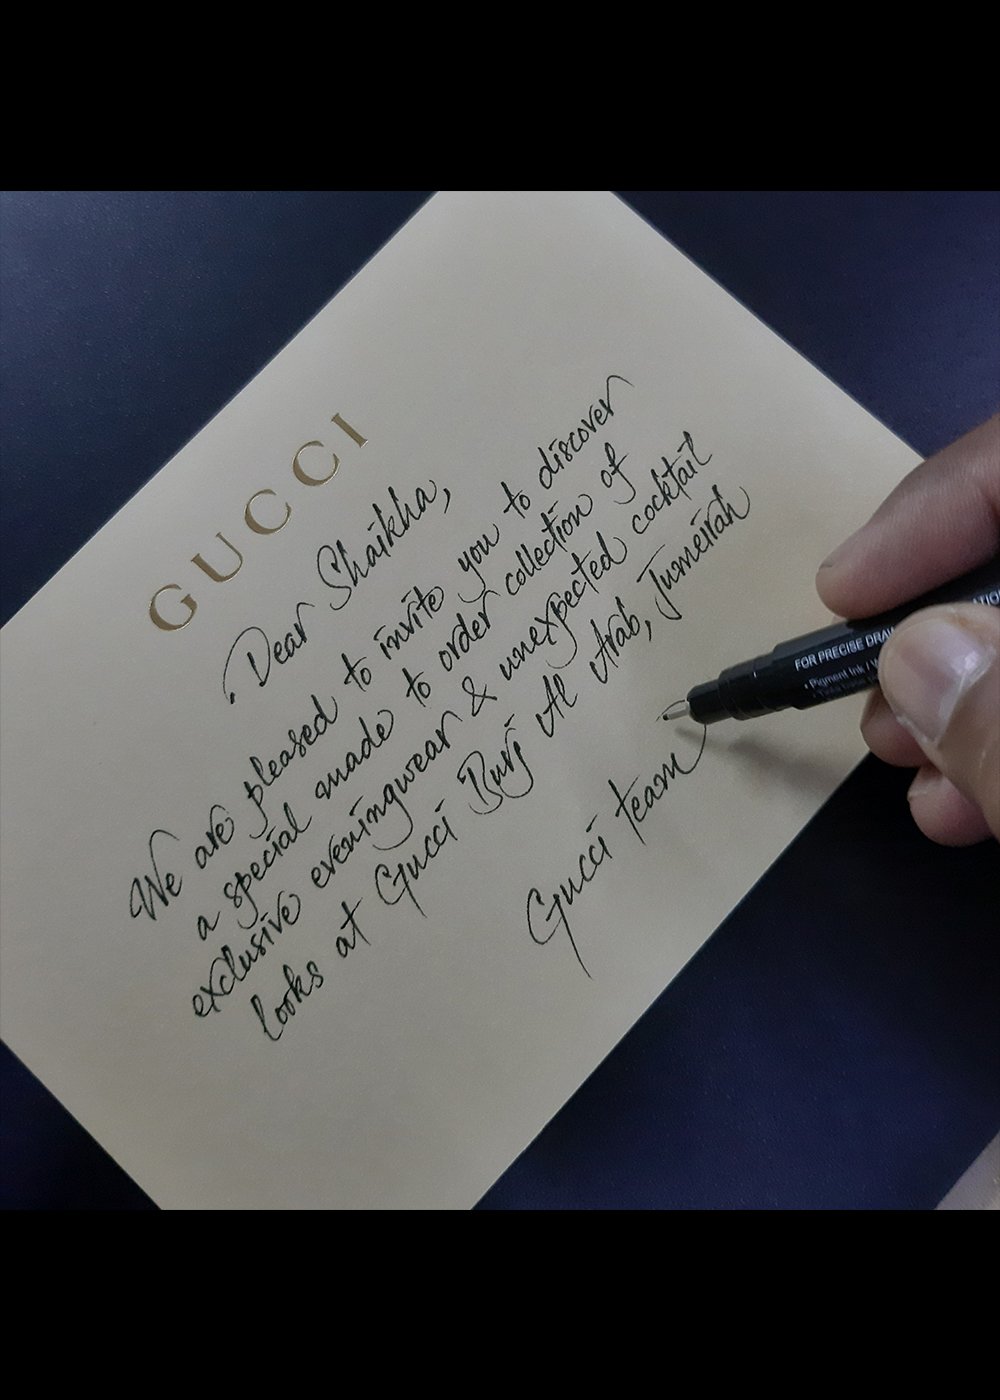 GUCCI
Dear Shaikha,
We are pleased to invite you to discover
a special made to order collection of
exclusive eveningwear & unexpected cocktail
looks at Gucci Burj Al Arab, Jumeirah
Gucci team
FOR PRECISE
• Pigment Ink /